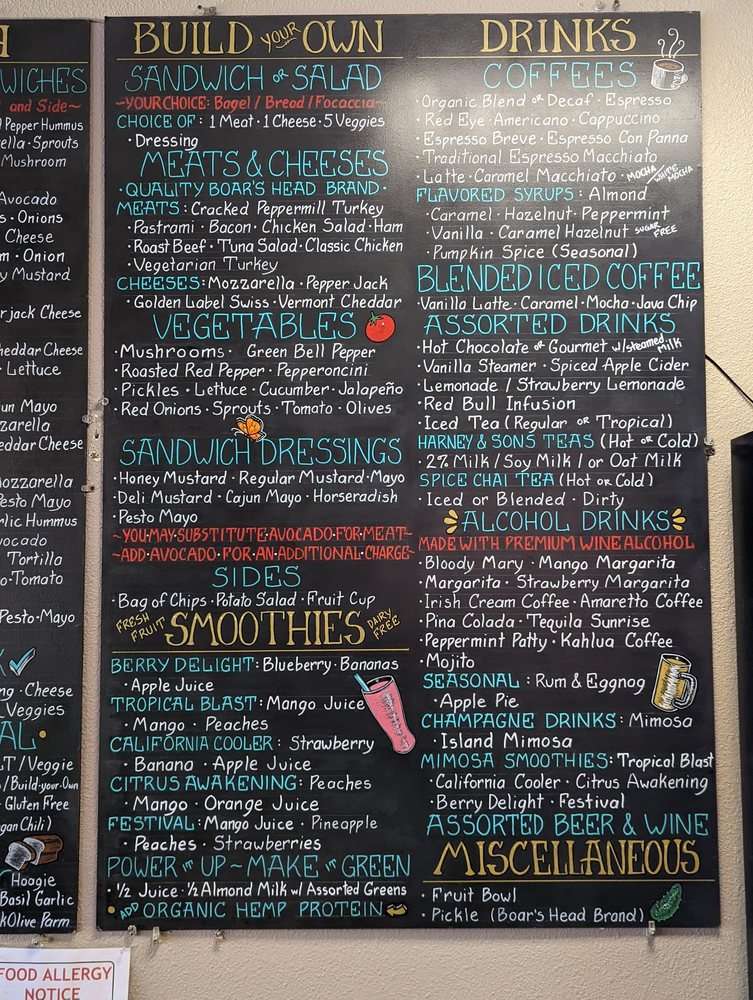 H
WICHES
and Side~
Pepper Hummus
rella · Sprouts
Mushroom
Avocado
s · Onions
Cheese
m · Onion
y Mustard
er jack Cheese
heddar Cheese
· Lettuce
un Mayo
zzarella
eddar Cheese
Mozzarella
esto Mayo
rlic Hummus
vocado
Tortilla
o · Tomato
Pesto · Mayo
K
ng · Cheese
Veggies
AL ·
LT / Veggie
/ Build-your-Own
Gluten Free
gan Chili)
Hoagie
Basil Garlic
k Olive Parm
FOOD ALLERGY
NOTICE
BUILD YOUR OWN
SANDWICH or SALAD
~YOUR CHOICE: Bagel / Bread / Focaccia~
CHOICE OF: 1 Meat · 1 Cheese · 5 Veggies
· Dressing
MEATS & CHEESES
· QUALITY BOAR'S HEAD BRAND ·
MEATS: Cracked Peppermill Turkey
· Pastrami · Bacon · Chicken Salad · Ham
· Roast Beef · Tuna Salad · Classic Chicken
· Vegetarian Turkey
CHEESES: Mozzarella · Pepper Jack
· Golden Label Swiss · Vermont Cheddar
VEGETABLES
· Mushrooms · Green Bell Pepper
· Roasted Red Pepper · Pepperoncini
· Pickles · Lettuce · Cucumber · Jalapeño
· Red Onions · Sprouts · Tomato · Olives
SANDWICH DRESSINGS
· Honey Mustard · Regular Mustard · Mayo
· Deli Mustard · Cajun Mayo · Horseradish
· Pesto Mayo
~YOU·MAY·SUBSTITUTE·AVOCADO·FOR·MEAT~
~ADD·AVOCADO·FOR·AN·ADDITIONAL·CHARGE~
SIDES
· Bag of Chips · Potato Salad · Fruit Cup
FRESH FRUIT SMOOTHIES DAIRY FREE
BERRY DELIGHT: Blueberry · Bananas
· Apple Juice
TROPICAL BLAST: Mango Juice
· Mango · Peaches
CALIFORNIA COOLER: Strawberry
· Banana · Apple Juice
CITRUS AWAKENING: Peaches
· Mango · Orange Juice
FESTIVAL: Mango Juice · Pineapple
· Peaches · Strawberries
POWER it UP ~ MAKE it GREEN
· ½ Juice · ½ Almond Milk w/ Assorted Greens
· ADD ORGANIC HEMP PROTEIN
DRINKS
COFFEES
· Organic Blend or Decaf · Espresso
· Red Eye · Americano · Cappuccino
· Espresso Breve · Espresso Con Panna
· Traditional Espresso Macchiato
· Latte · Caramel Macchiato · MOCHA / WHITE MOCHA
FLAVORED SYRUPS: Almond
· Caramel · Hazelnut · Peppermint
· Vanilla · Caramel Hazelnut SUGAR FREE
· Pumpkin Spice (Seasonal)
BLENDED ICED COFFEE
· Vanilla Latte · Caramel · Mocha · Java Chip
ASSORTED DRINKS
· Hot Chocolate or Gourmet w/ steamed Milk
· Vanilla Steamer · Spiced Apple Cider
· Lemonade / Strawberry Lemonade
· Red Bull Infusion
· Iced Tea (Regular or Tropical)
HARNEY & SONS TEAS (Hot or Cold)
· 2% Milk / Soy Milk / or Oat Milk
SPICE CHAI TEA (Hot or Cold)
· Iced or Blended · Dirty
ALCOHOL DRINKS
MADE WITH PREMIUM WINE ALCOHOL
· Bloody Mary · Mango Margarita
· Margarita · Strawberry Margarita
· Irish Cream Coffee · Amaretto Coffee
· Pina Colada · Tequila Sunrise
· Peppermint Patty · Kahlua Coffee
· Mojito
SEASONAL: Rum & Eggnog
· Apple Pie
CHAMPAGNE DRINKS: Mimosa
· Island Mimosa
MIMOSA SMOOTHIES: Tropical Blast
· California Cooler · Citrus Awakening
· Berry Delight · Festival
ASSORTED BEER & WINE
MISCELLANEOUS
· Fruit Bowl
· Pickle (Boar's Head Brand)